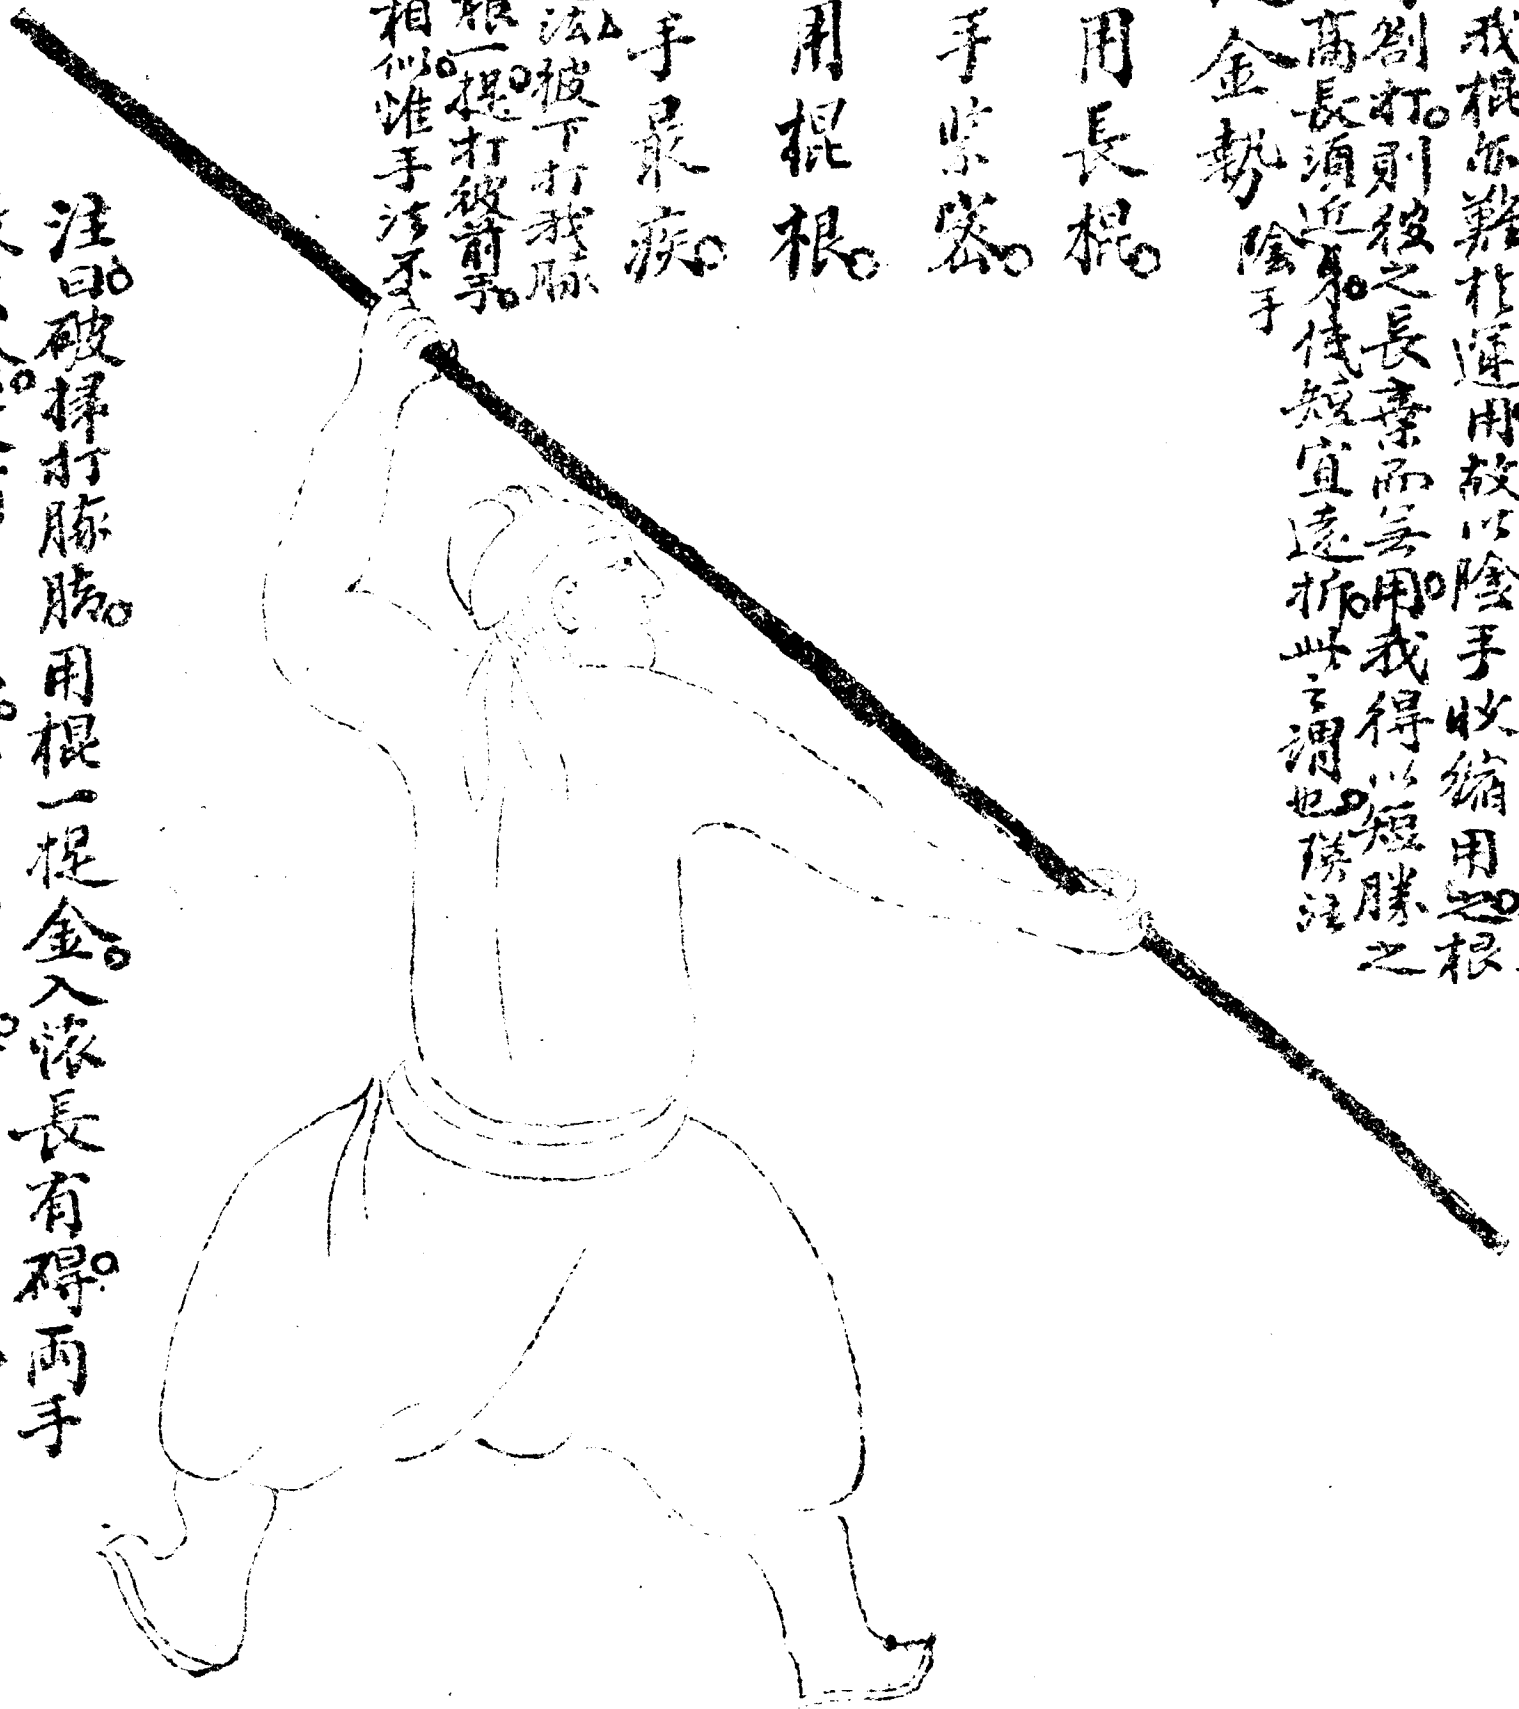 我棍亦難於運用故以陰手收縮用之根
劄打則彼之長棄而無用我得以短勝之
高長須近身伐短宜遠拆此之謂也瑛注
金勢 陰手
用長棍
手紫密
用棍根
手最疾
法彼下打我膝
根一提打彼前手
相似惟手法不
注曰破掃打膝腈用棍一提金入懷長有碍両手